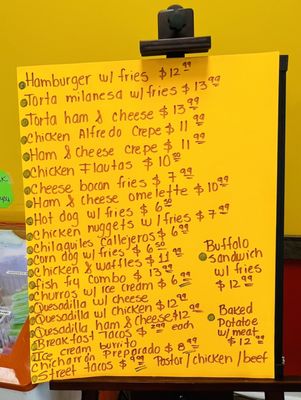 Hamburger w/ fries $12.99
Torta milanesa w/ fries $13.99
Torta ham & cheese $13.99
Chicken Alfredo Crepe $11.99
Ham & Cheese crepe $11.99
Chicken Flautas $10.50
Cheese bacon fries $7.99
Ham & cheese omelette $10.99
Hot dog w/ fries $6.50
Chicken nuggets w/ fries $7.99
Chilaquiles callejeros $6.99
Corn dog w/ fries $6.50
Chicken & waffles $11.99
fish fry combo $13.99
churros w/ ice cream $6.99
Quesadilla w/ cheese
Quesadilla w/ chicken $12.99
Quesadilla ham & cheese $12.99
Breakfast Tacos $2.99 each
Ice cream burrito
Chicharron Preparado $8.99
Street tacos Pastor/chicken/beef
Buffalo
sandwich
w/ fries
$12.99
Baked
Potatoe
w/ meat
$12.99
you